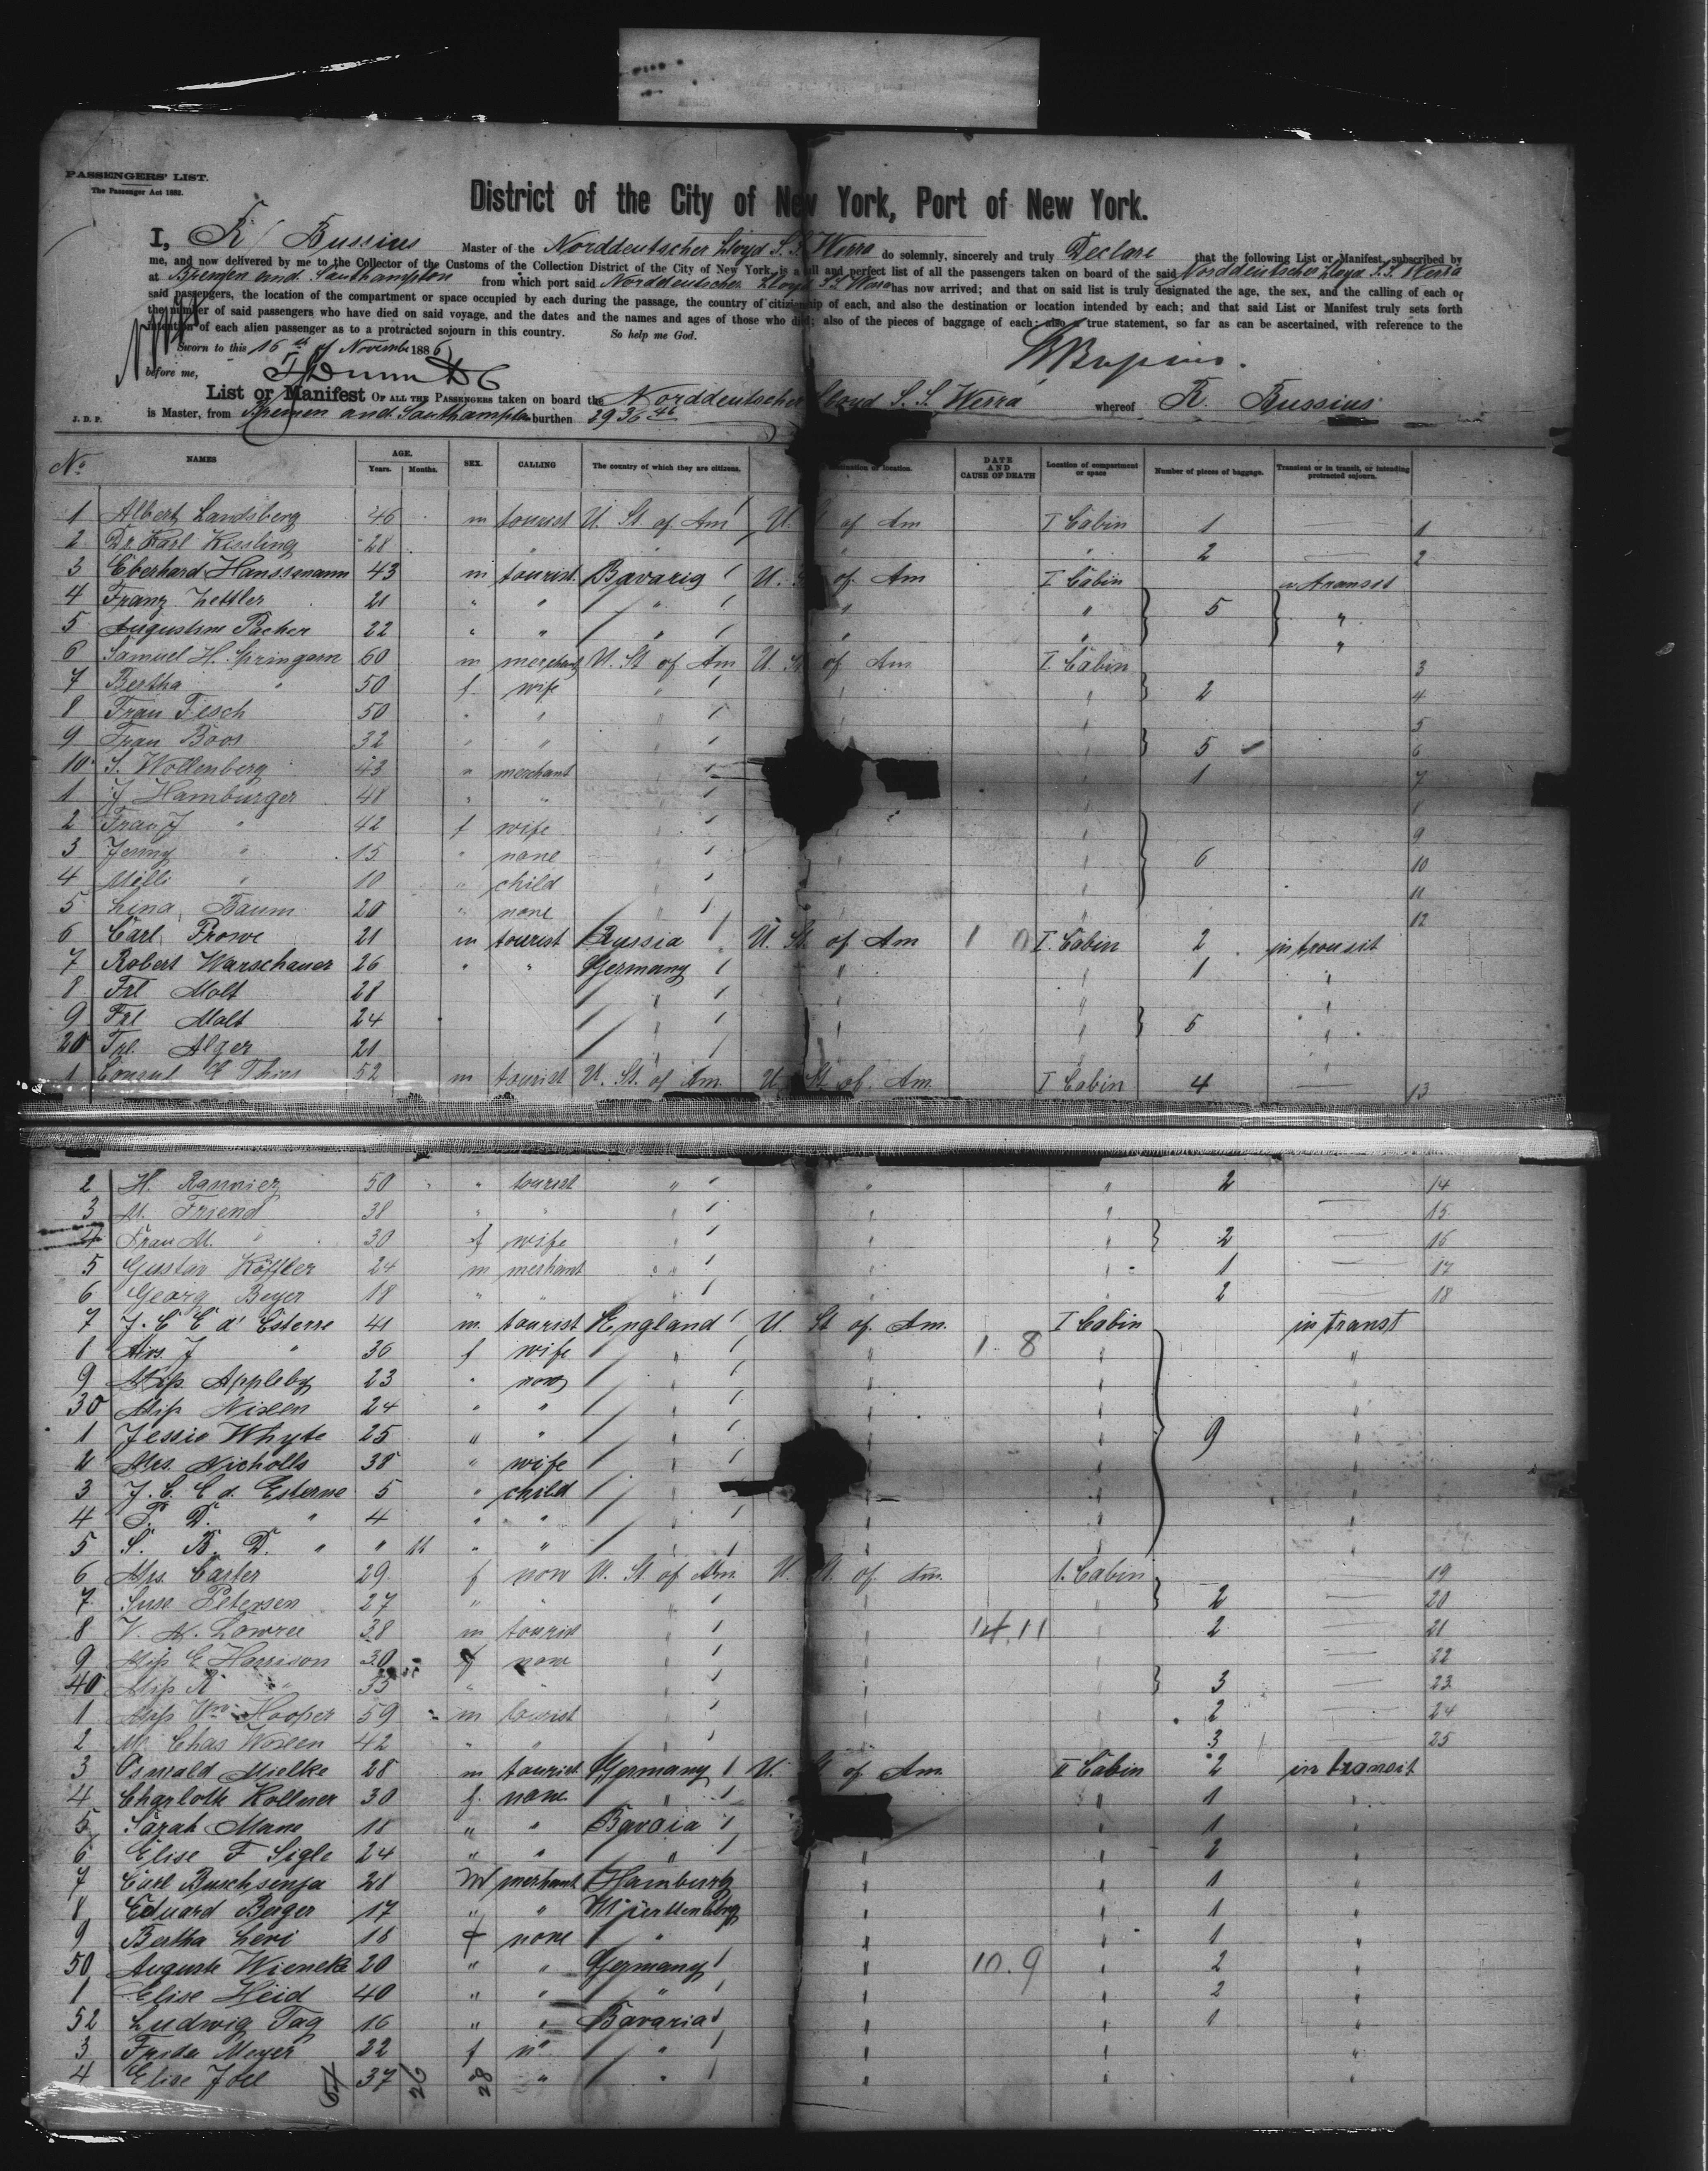 PASSENGERS' LIST.
The Passenger Act 1882.
District of the City of New York, Port of New York.
I, R Bussius Master of the Norddeutscher Lloyd S.S. Werra do solemnly, sincerely and truly Declare that the following List or Manifest, subscribed by
me, and now delivered by me to the Collector of the Customs of the Collection District of the City of New York, is a full and perfect list of all the passengers taken on board of the said Norddeutscher Lloyd S.S. Werra
at Bremen and Southampton from which port said Norddeutscher Lloyd S.S. Werra has now arrived; and that on said list is truly designated the age, the sex, and the calling of each of
said passengers, the location of the compartment or space occupied by each during the passage, the country of citizenship of each, and also the destination or location intended by each; and that said List or Manifest truly sets forth
the number of said passengers who have died on said voyage, and the dates and the names and ages of those who died; also of the pieces of baggage of each; also a true statement, so far as can be ascertained, with reference to the
intention of each alien passenger as to a protracted sojourn in this country. So help me God.
Sworn to this 16th of November 1886
before me,
List or Manifest OF ALL THE PASSENGERS taken on board the Norddeutscher Lloyd S.S. Werra whereof R Bussius
J. D. P. is Master, from Bremen and Southampton burthen 2936
No NAMES AGE. Years. Months. SEX. CALLING The country of which they are citizens. location. DATE AND CAUSE OF DEATH Location of compartment or space Number of pieces of baggage. Transient or in transit, or intending protracted sojourn.
1 Albert Landsberg 46 m tourist U. St. of Am U. St of Am I Cabin 1 — 1
2 Dr. Karl Kissling 28 " " " " 2 — 2
3 Eberhard Hanssmann 43 m tourist Bavaria U. St of Am I Cabin in transit
4 Franz Zettler 21 " " " " " 5 "
5 Augustine Pacher 22 " " " " " "
6 Samuel H. Springarn 60 m merchant U. St of Am U. St of Am I. Cabin 3
7 Bertha " 50 f wife " " " 2 4
8 Frau Fesch 50 " " " " " 5
9 Frau Boos 32 " " " " " 5 6
10 S. Wollenberg 43 " merchant " " 1 7
1 J Hamburger 48 " " " "
2 Frau J " 42 f wife " " " 9
3 Jenny " 15 " none " " " 6 10
4 Milli " 10 " child " " " 11
5 Lina Baum 20 " none " " " 12
6 Carl Prowe 21 m tourist Russia U. St. of Am I. Cabin 2 in transit
7 Robert Warschauer 26 " " Germany " " 1 "
8 Frl Molt 28 " " " "
9 Frl Molt 24 " " " 5 "
20 Frl. Alger 21 " " " "
1 Consul 52 m tourist U. St. of Am. U. St. of Am. I Cabin 4 — 13
2 H. 50 " tourist " " " 2 14
3 M. Friend 38 " " " " " — 15
4 Frau M. " 30 f wife " " " 2 — 16
5 Gustav Köffler 24 m merchant " " " 1 — 17
6 Georg Beyer 18 " " " " " 2 — 18
7 J. C E d' Esterre 41 m. tourist England U. St of Am. I Cabin in transt
8 Mrs. J " 36 f wife " " 1. 8 " "
9 Miss Appleby 23 " none " " " "
30 Miss Nixen 24 " " " " " "
1 Jessie Whyte 25 " " " " " 9 "
2 Mrs. Nicholls 38 " wife " " " "
3 J. C. E d. Esterre 5 " child " " " "
4 P. D. " 4 " " " " " "
5 S. B. D. " " 11 " " " " " "
6 Mrs. Carter 29 f none U. St of Am. U. St. of Am. I. Cabin — 19
7 Petersen 27 " " " " " 2 — 20
8 V. H. Lowree 38 m tourist " " 14.11 " 2 — 21
9 Miss E Harrison 30 f none " " " — 22
40 Miss R " 35 " " " " " 3 — 23
1 Wm Hooper 59 m tourist " " " 2 — 24
2 Mr Chas 42 " " " " " 3 25
3 Oswald Mielke 28 m tourist Germany U. St of Am II Cabin 2 in transit
4 Charlotte Kollmer 30 f. none " " 1 "
5 Sarah Mane 18 " " Bavaia " 1 "
6 Elise F Sigle 24 " " " " " 2 "
7 Carl 28 M merchant Hamburg " " 1 "
8 Eduard Berger 17 " " Wuerttenberg " " 1 "
9 Bertha Levi 18 f none " " " 1 "
50 Auguste Wieneke 20 " " Germany " 10.9 " 2 "
1 Elise Heid 40 " " " " " 2 "
52 Ludwig Tag 16 " " Bavaria " " 1 "
3 Frieda Meyer 22 f " " " " "
4 Elise Joel 37 " " " " "
54 26 28